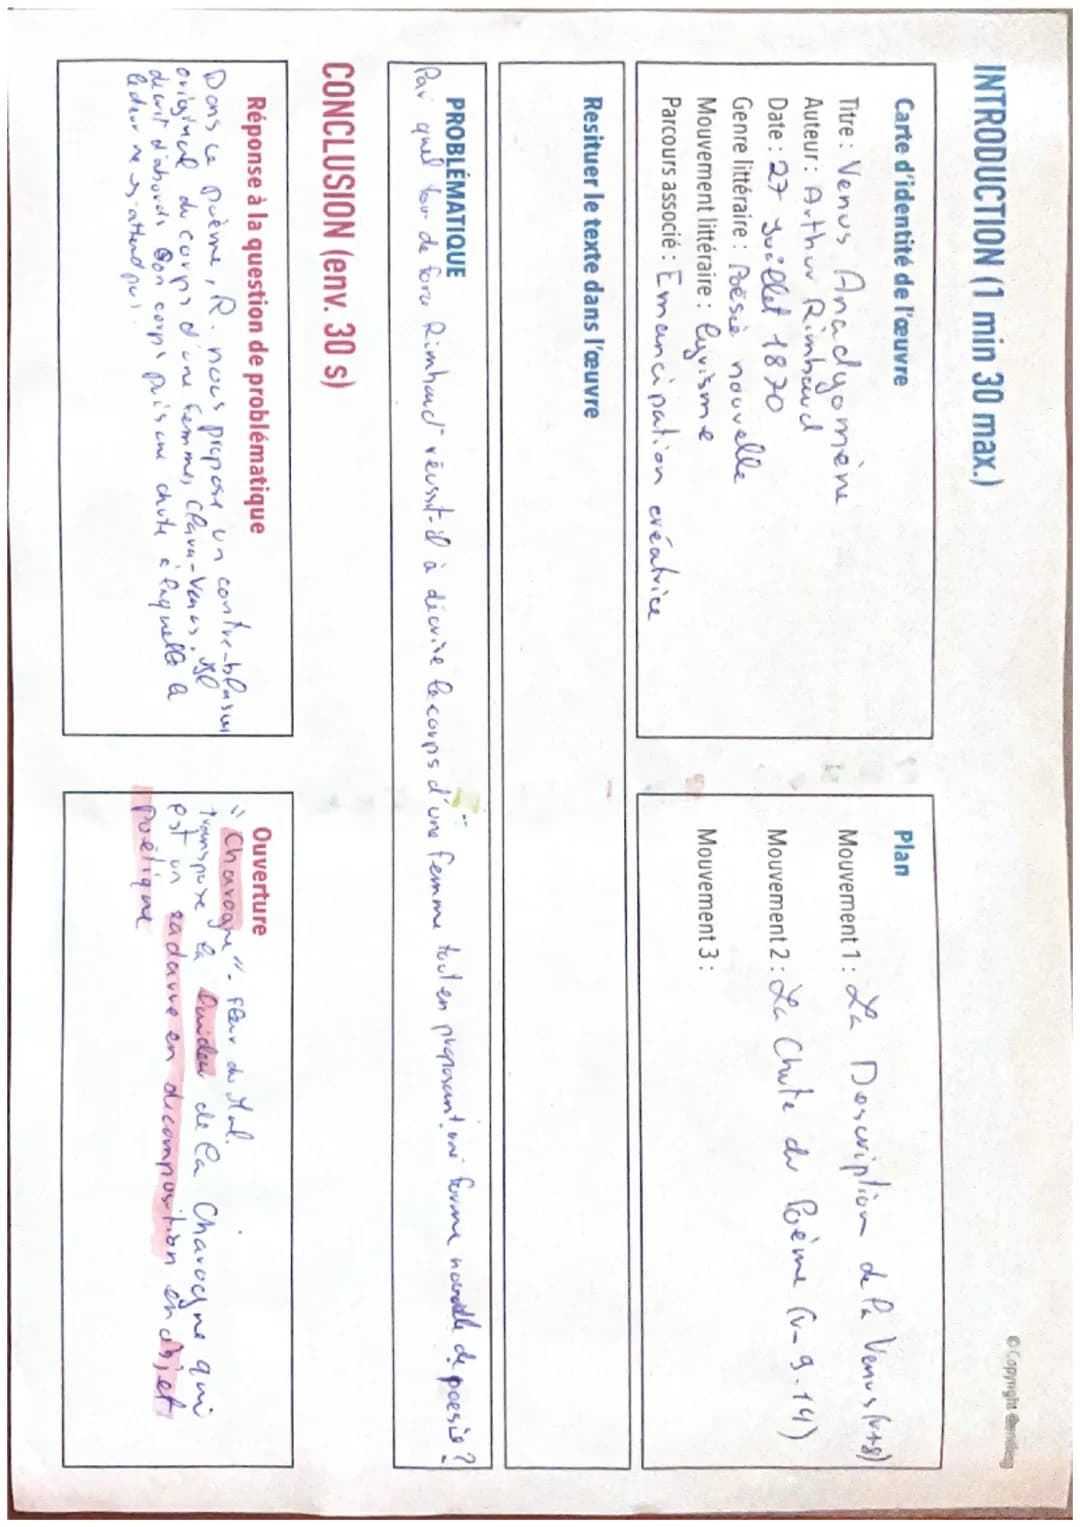 © Copyright
INTRODUCTION (1 min 30 max.)
Carte d'identité de l'œuvre
Titre : Venus Anadyomène
Auteur : Arthur Rimbaud
Date : 27 Juillet 1870
Genre littéraire : Poésie nouvelle
Mouvement littéraire : lyrisme
Parcours associé : Emancipation créatrice
Plan
Mouvement 1 : La Description de la Venus (v1-8)
Mouvement 2 : La Chute du Poème (v-9-14)
Mouvement 3 :
Resituer le texte dans l'œuvre
PROBLÉMATIQUE
Par quel tour de force Rimbaud réussit-il à décrire le corps d'une femme tout en proposant une forme nouvelle de poesie ?
CONCLUSION (env. 30 s)
Réponse à la question de problématique
Dans ce poème, R. nous propose un contre-blason
original du corps d'une femme, Clara-Venus. Il
décrit d'abords son corps puis une chute à laquelle a
lecteur ne s'attend pas.
Ouverture
"Charogne" - Fleur du Mal.
Transpose la laideur de la Charogne qui
est un cadavre en décomposition en objet
poétique